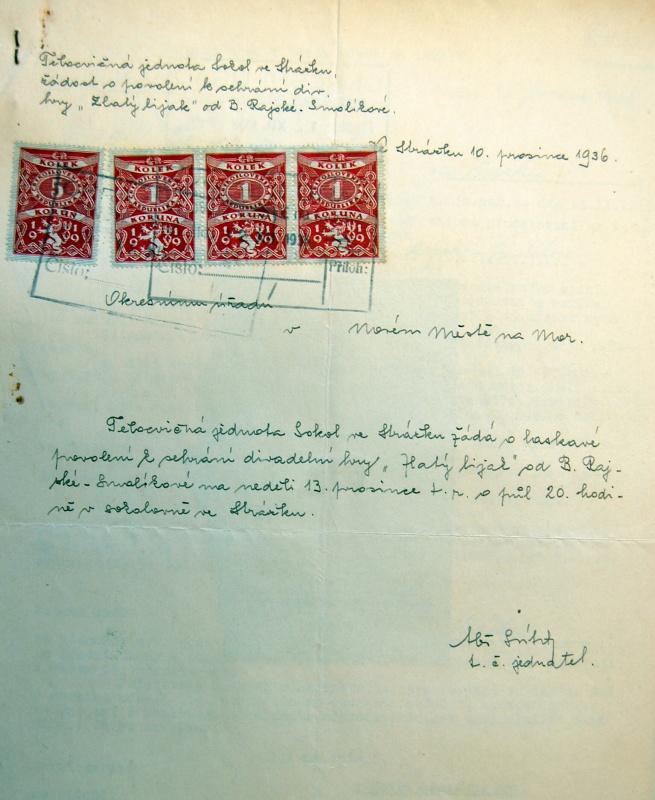 Tělocvičná jednota Sokol ve Strážku,
žádost o povolení k sehrání div.
hry „Zlatý lijak" od B. Rajské-Smolíkové.
Ve Strážku 10. prosince 1936.
ČR ČR ČR ČR
KOLEK KOLEK KOLEK KOLEK
5 1 1 1
KORUN KORUNA KORUNA KORUNA
1919 1919 1919 1919
Číslo: Číslo: Příloh:
Okresnímu úřadu
v Novém Městě na Mor.
Tělocvičná jednota Sokol ve Strážku žádá o laskavé
povolení k sehrání divadelní hry „Zlatý lijak" od B. Raj-
ské-Smolíkové na neděli 13. prosince t. r. o půl 20. hodi-
ně v sokolovně ve Strážku.
t. č. jednatel.